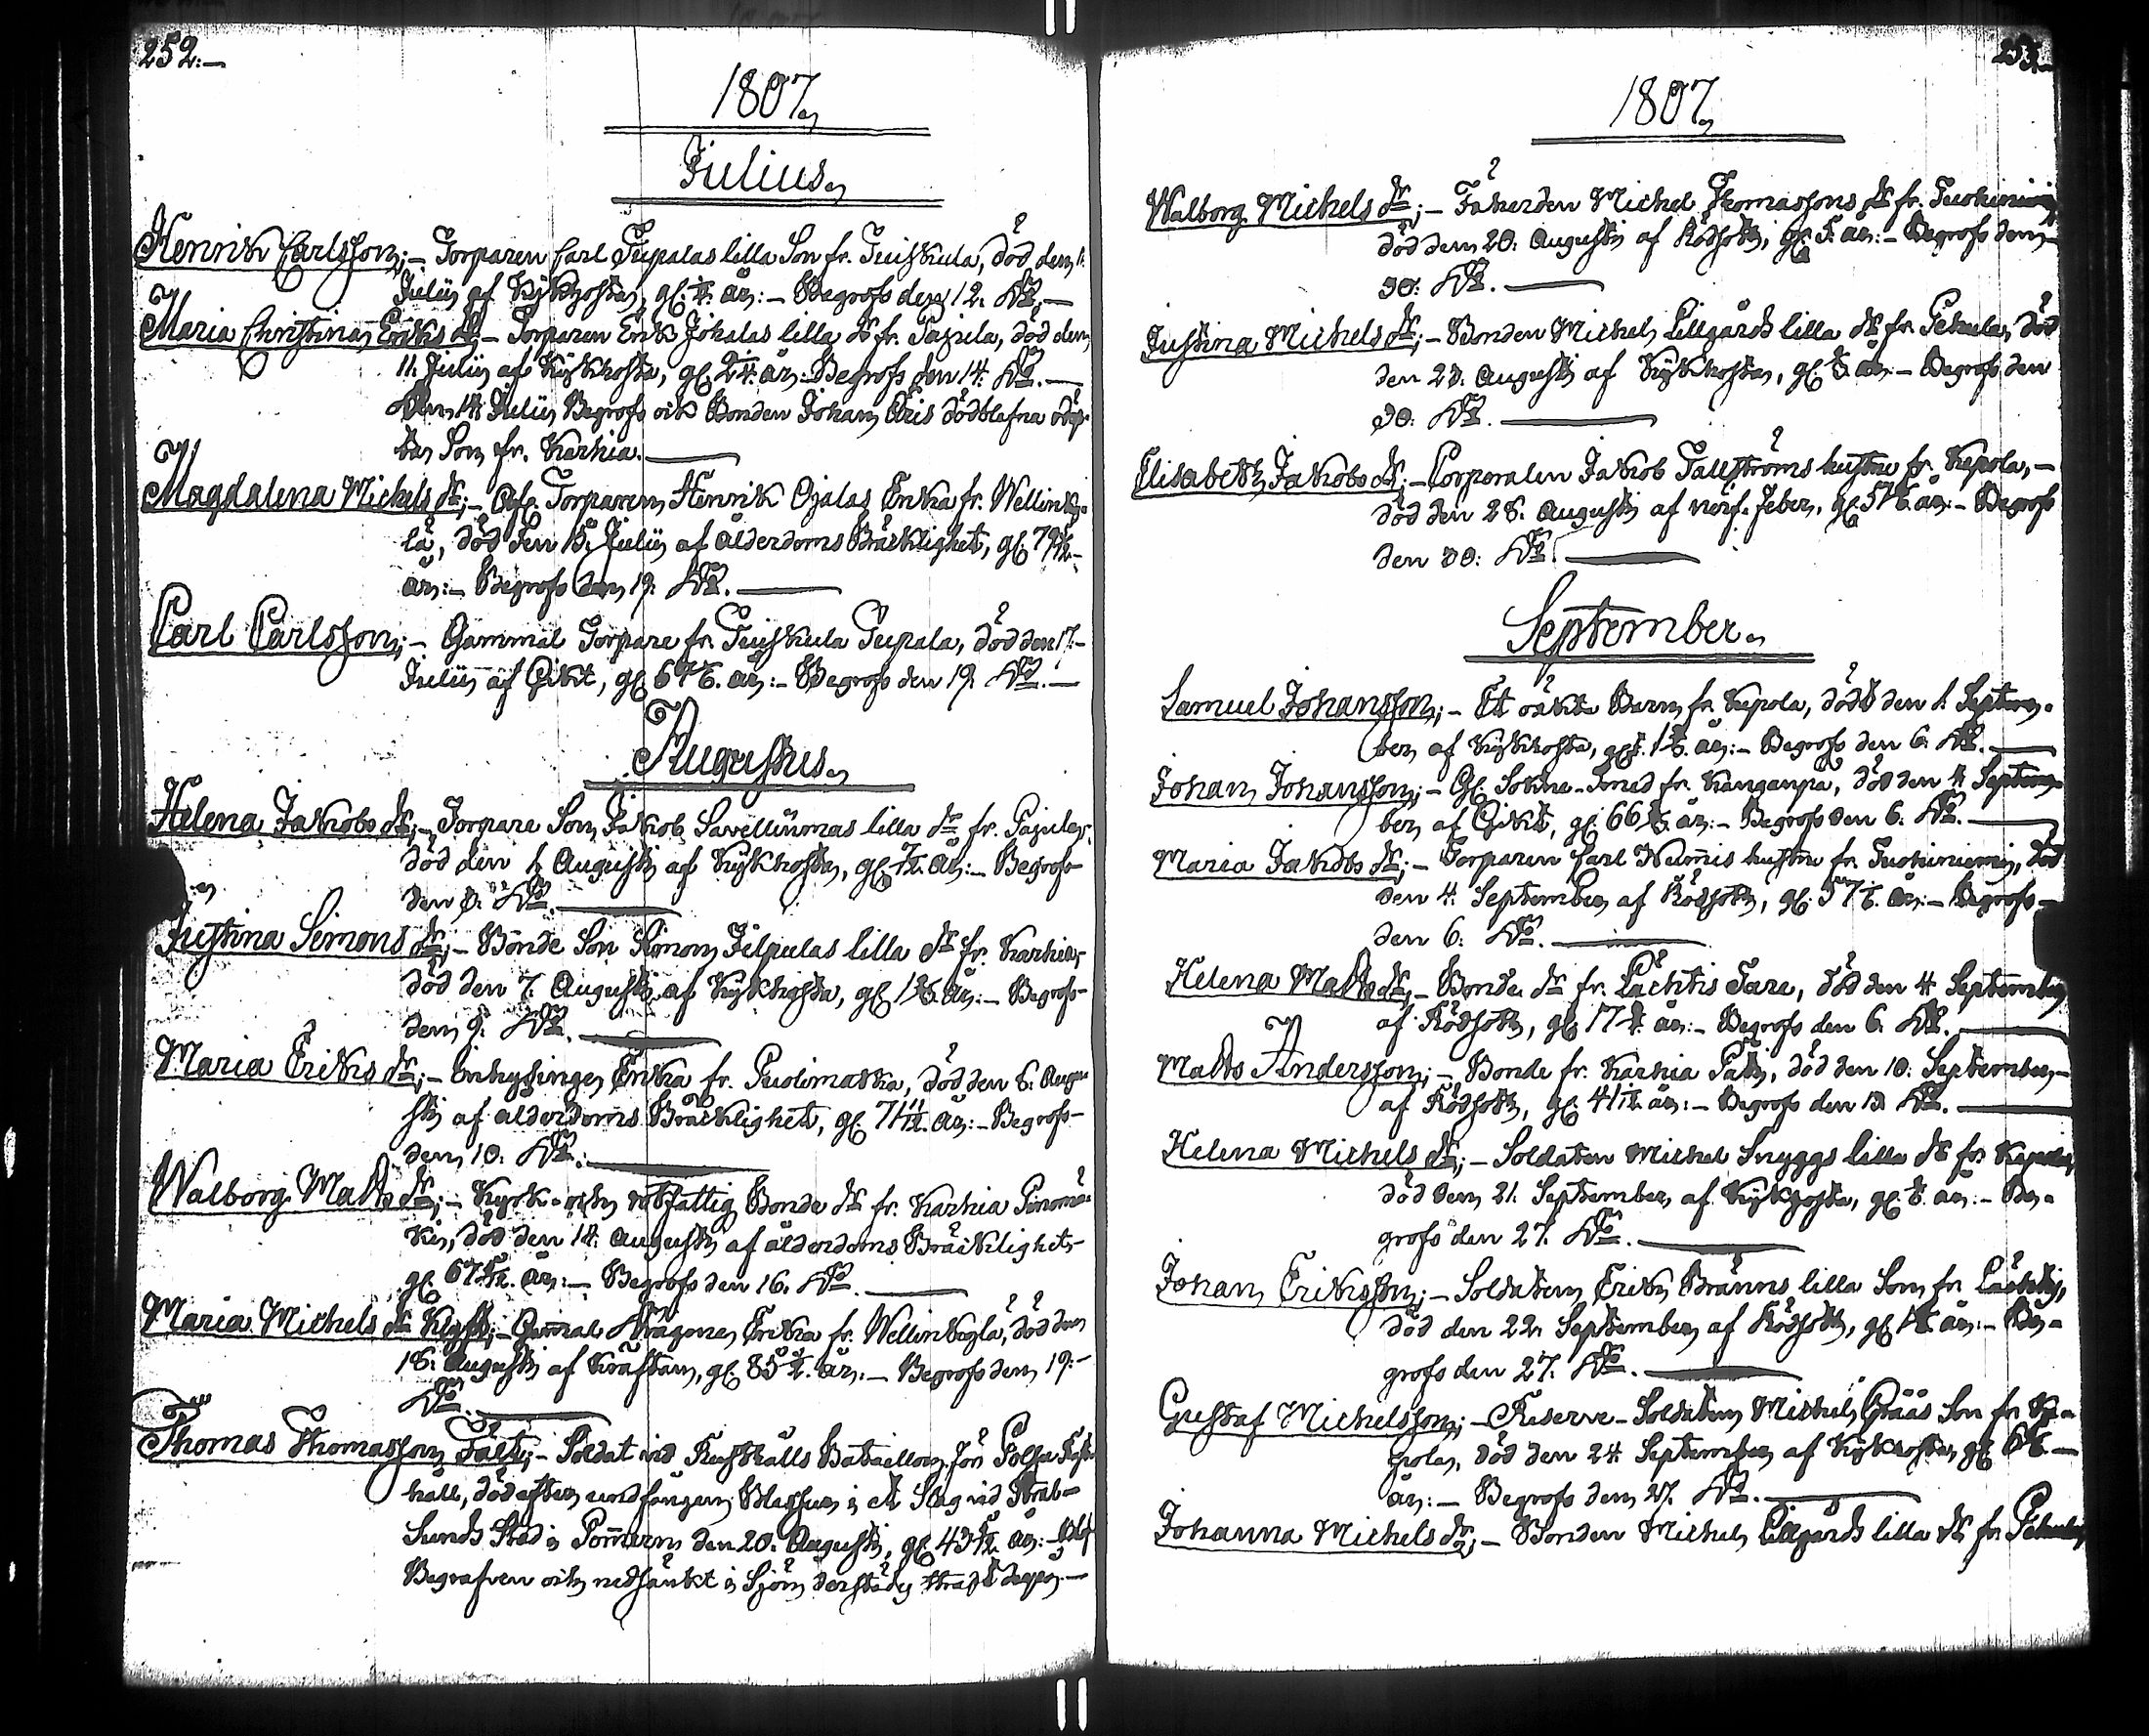 252.
1807.
Julius.
Henrik Carlsson;- Torparen Carl Tupalas lilla Son fr. Teiskula, död den
Julii af Kykhosta, gl. år:- Begrofs den 12. Do.
Maria Christina Eriks dr;- Torparen Erik Jokalas lilla dr fr. Pajula, död den
11. Julii af Kykhosta, gl. år:- Begrofs den 14. Do.
Den 14. Julii Begrofs ock Bonden Johan dödblefna odöp-
ta Son fr. Karhia.
Magdalena Michels dr;- Torparen Henrik Ojalas Enka fr. Wellinky-
lä, död den 15. Julii af ålderdoms Bräcklighet, gl.
år:- Begrofs den 19. Do.
Carl Carlsson;- Gammal Torpare fr. Teiskula Tupala, död den 17.
Julii af Gikt, gl. år:- Begrofs den 19. Do.
Augustus.
Helena Jakobs dr;- Torpare Son Jakob Savellunmas lilla dr fr. Pajula,
död den 1. Augusti af Kykhosta, gl. år:- Begrofs
den Do.
Justina Simons dr;- Bonde Son Simon Jilpulas lilla dr fr. Karhia,
död den 7. Augusti af Kykhosta, gl. år:- Begrofs
den 9. Do.
Maria Eriks dr;- Inhysinge Enka fr. Puolimatka, död den 8. Augu-
sti af ålderdoms Bräcklighet, gl. 71 11/12. år:- Begrofs
den 10. Do.
Walborg Matts dr;- Kyrk- och rotfattig Bonde dr fr. Karhia Pinomä-
ki, död den 14. Augusti af ålderdoms Bräcklighet,
gl. år:- Begrofs den 16. Do.
Maria Michels dr Gammal Dragone Enka fr. Wellinkylä, död den
18. Augusti af Kräftan, gl. år.- Begrofs den 19.
Do.
Thomas Thomasson Fält;- Soldat vid Rusthålls Bataillon för Polsa Rust-
håll, död efter undfången Blessur i et Slag vid Stral-
sunds Stad i Pommern den 20. Augusti, gl. år:- blef
Begrafven och nedsänkt i Sjön derstädes
253.
1807.
Walborg Michels dr;- Fäherden Michel Thomassons dr fr. Tuokiniemi
död den 20. Augusti af Rödsot, gl. 5. år:- Begrofs den
30. Do.
Justina Michels dr;- Bonden Michel Lillgårds lilla dr fr. Pekula, död
den Augusti af Kykhosta, gl. år:- Begrofs den
30. Do.
Elisabeth Jakobs dr;- Corporalen Jakob Tallströms hustru fr. Kepola,
död den 28. Augusti af nerf. feber, gl. år:- Begrofs
den 30. Do.
September.
Samuel Johansson;- Et oäkta Barn fr. Kepola, död den 1. Septem-
ber af Kykhosta, gl. år:- Begrofs den 6. Do.
Johan Johansson;- Gl. Sokne-Smed fr. Kanganpä, död den 4 Septem-
ber af Gikt, gl. år:- Begrofs den 6. Do.
Maria Jakobs dr;- Torparen Carl Welmis hustru fr. Tuokiniemi, död
den 4. September af Rödsot, gl. år:- Begrofs
den 6. Do.
Helena Matts dr;- Bonde dr fr. Lachtis Tare, död den 4 September
af Rödsot, gl. år:- Begrofs den 6. Do.
Matts Andersson;- Bonde fr. Karhia död den 10. September
af Rödsot, gl. år:- Begrofs den 13. Do.
Helena Michels dr;- Soldaten Michel Snyggs lilla dr fr. Kepola,
död den 21. September af Kykhosta, gl. år:- Be-
grofs den 27. Do.
Johan Eriksson;- Soldaten Erik Bränns lilla Son fr. Lachtis,
död den 22. September af Rödsot, gl. år:- Be-
grofs den 27. Do.
Gustaf Michelsson;- Reserve-Soldaten Michel Grääs Son fr. Ke-
pola, död den 24 September af Kykhosta, gl.
år:- Begrofs den 27. Do.
Johanna Michels dr;- Bonden Michel Lillgårds lilla dr fr. Pekula,